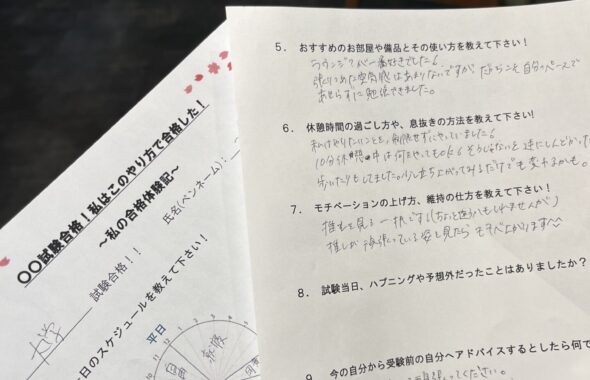 〇〇試験合格！私はこのやり方で合格した！
～私の合格体験記～
氏名(ペンネーム)：
大学 試験合格！！
一日のスケジュールを教えて下さい！
平日
5． おすすめのお部屋や備品とその使い方を教えて下さい！
ラウンジが一番好きでした！
張りつめた空気感はあまりないですが だからこそ自分のペースで
あせらずに勉強できました。
6． 休憩時間の過ごし方や、息抜きの方法を教えて下さい！
私はやりたいことを、制限せずにやっていました！
10分休憩中は何をやってもOK！そうしないと逆にしんどか
歩いたりもしてました。少し立ち上がってみるだけでも変わるかも。
7． モチベーションの上げ方、維持の仕方を教えて下さい！
推しを見る一択です！(ちょっと違うかもしれませんが)
推しが頑張っている姿を見たらモチベ上がります^^
8． 試験当日、ハプニングや予想外だったことはありましたか？
9． 今の自分から受験前の自分へアドバイスするとしたら何で
ください。